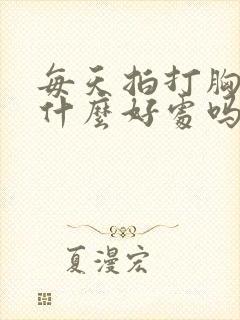 每天拍打胸
什麼好處吗
夏漫宏